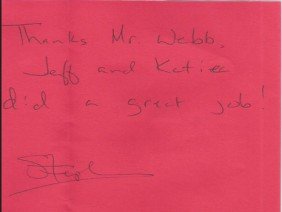 Thanks Mr. Webb,
Jeff and Katie
did a great job!